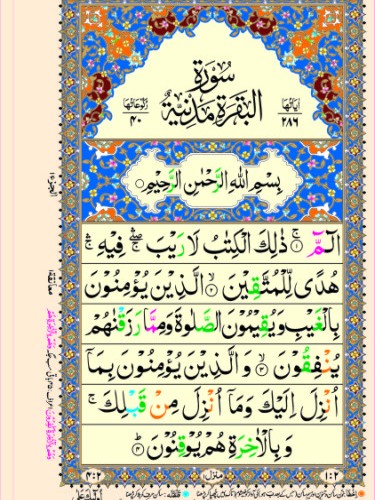 سُوْرَةُ
الْبَقَرَةِ مَدَنِيَّةٌ
اٰيَاتُهَا
٢٨٦
رُكُوْعَاتُهَا
٤٠
بِسْمِ اللهِ الرَّحْمٰنِ الرَّحِيْمِ ○
الٓمّٓ ۚ۱ ذٰلِكَ الْكِتٰبُ لَا رَيْبَ ۛۖ فِيْهِ ۛۚ
هُدًى لِّلْمُتَّقِيْنَ ۙ۲ الَّذِيْنَ يُؤْمِنُوْنَ
بِالْغَيْبِ وَيُقِيْمُوْنَ الصَّلٰوةَ وَمِمَّا رَزَقْنٰهُمْ
يُنْفِقُوْنَ ۙ۳ وَالَّذِيْنَ يُؤْمِنُوْنَ بِمَآ
اُنْزِلَ اِلَيْكَ وَمَآ اُنْزِلَ مِنْ قَبْلِكَ ۚ
وَبِالْاٰخِرَةِ هُمْ يُوْقِنُوْنَ ؕ۴
معانقة
١:٢
منزل ١
٤:٢